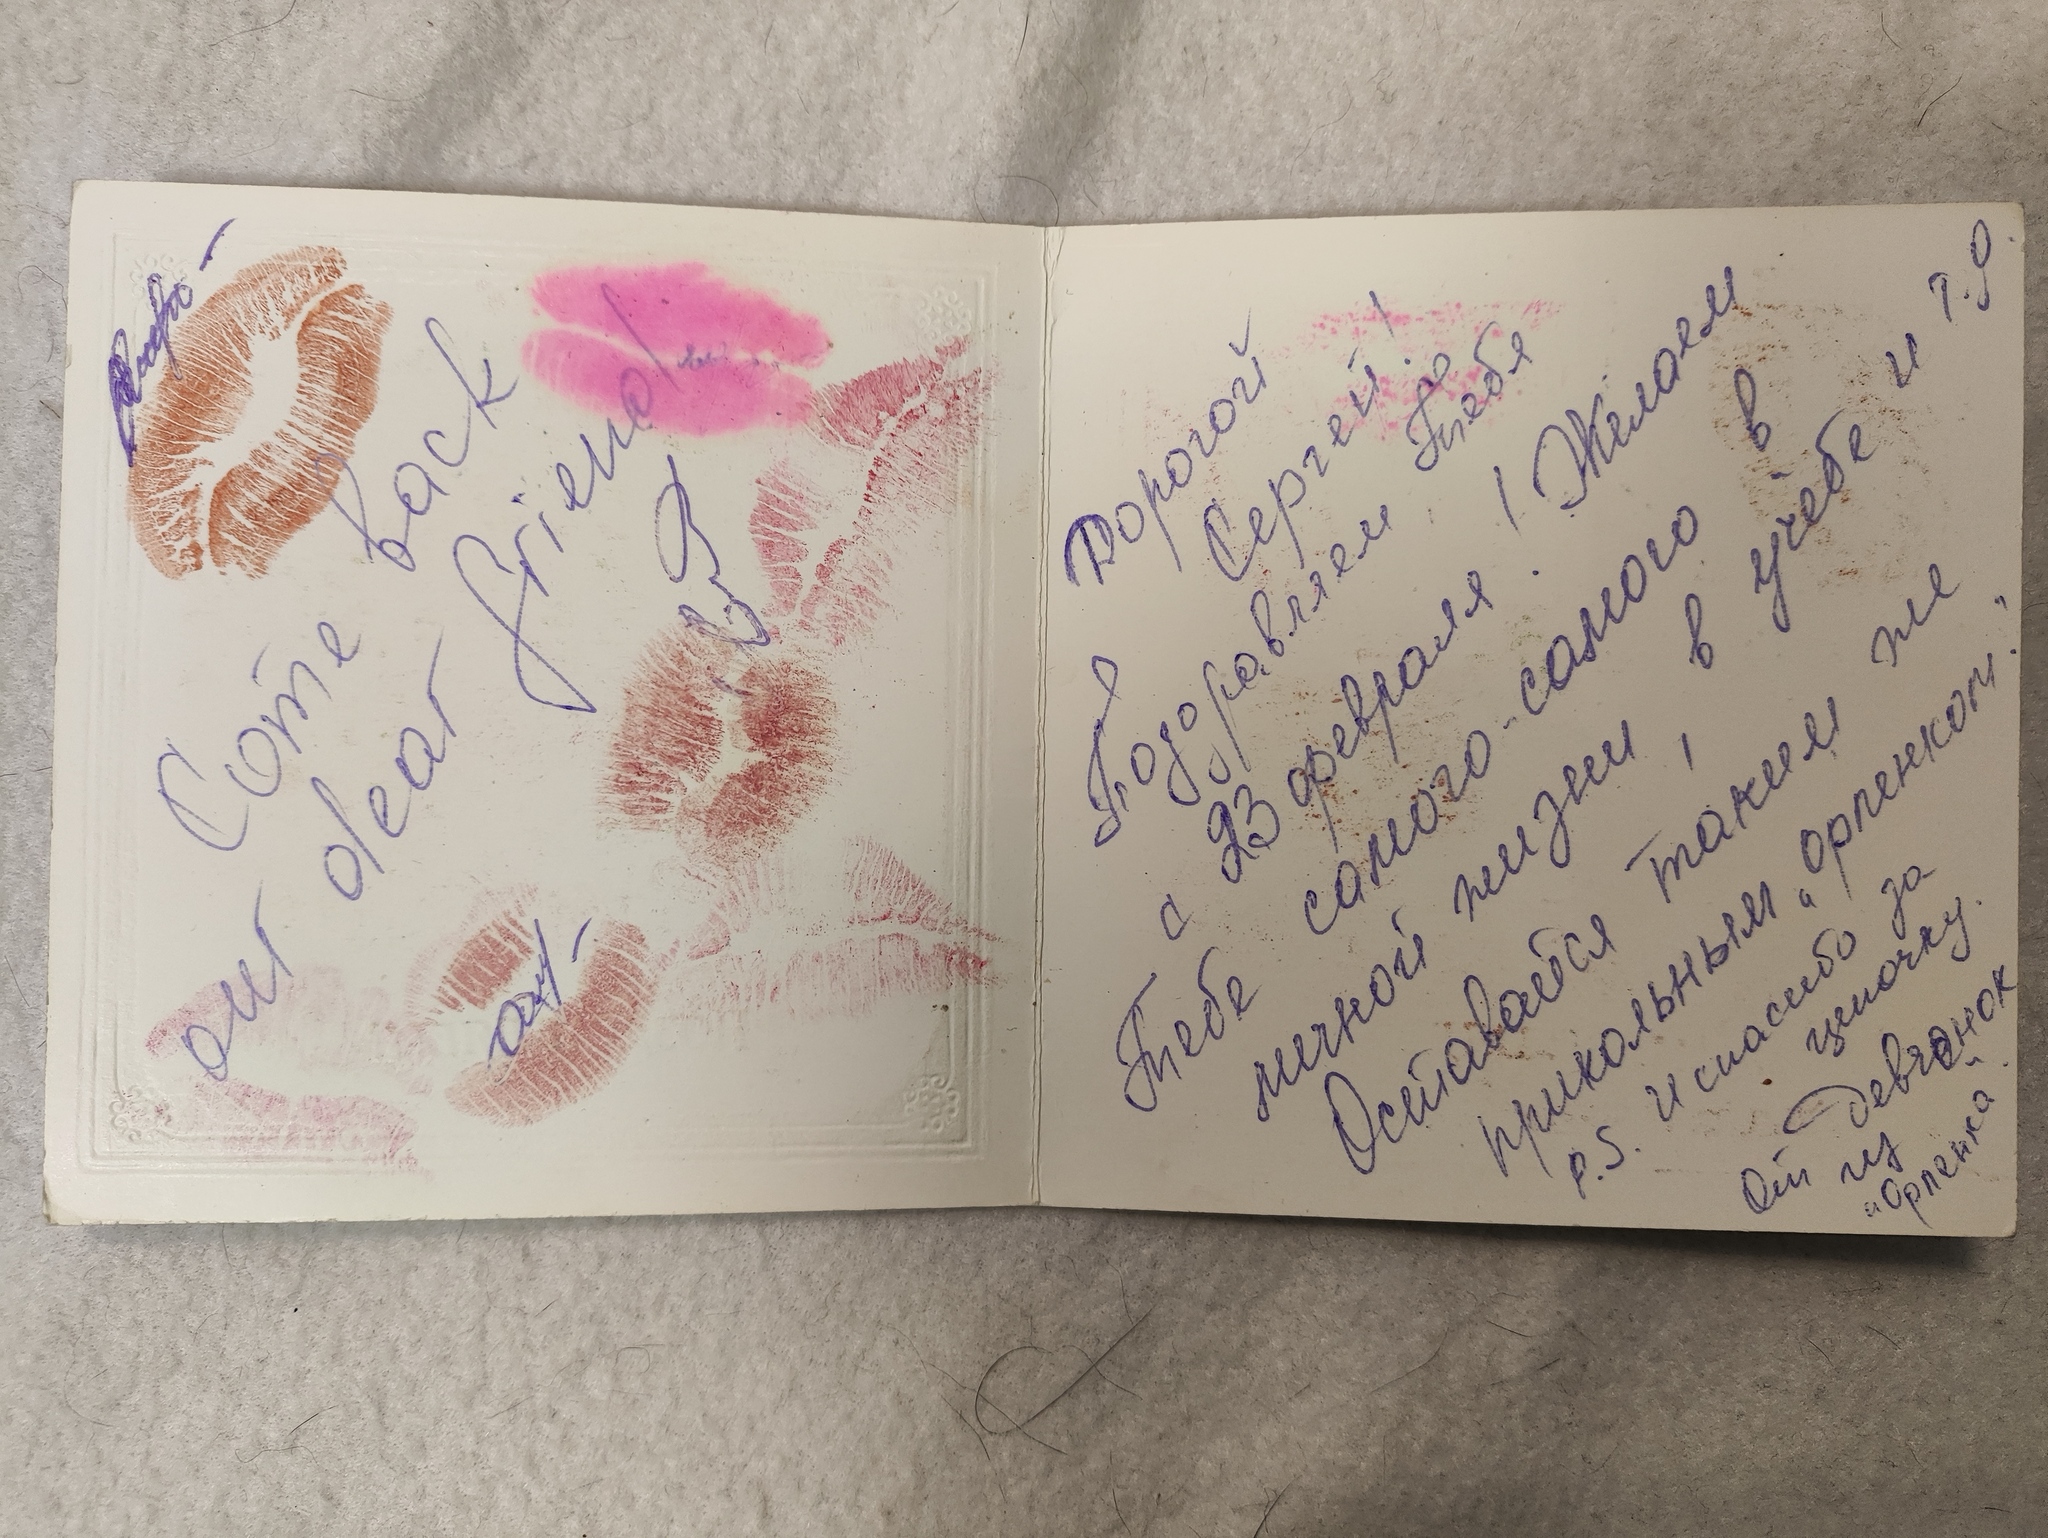 Come back
our dear friend!
Дорогой
Сергей!
Поздравляем Тебя
с 23 февраля! Желаем
Тебе самого-самого в
личной жизни, в учёбе и т.д.
Оставайся таким же
прикольным „Орленком".
P.S. и спасибо за
цепочку.
От девчонок
из
„Орленка"